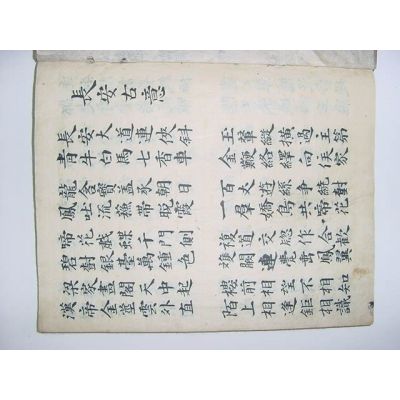 長安古意
長安大道連俠斜
青牛白馬七香車
玉輦縱橫過主第
金鞭絡繹向侯家
龍含寶盖承朝日
鳳吐流蘇帶晚霞
一百丈遊絲爭統樹
一群嬌鳥共啼花
啼花戲蝶千門側
碧樹銀臺萬鍾色
複道交窓作合歡
雙闕連甍垂鳳翼
梁家畫閣天中起
漢帝金莖雲外直
樓前相望不相知
陌上相逢鉅相識